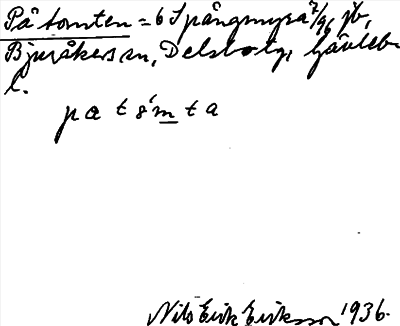 På tomten = 6 Spångmyra 7/96, jb,
Bjuråkers sn, Delsbo tg, Gävleb.
l.
pa t s'm t a
Nils Erik Eriksson 1936.